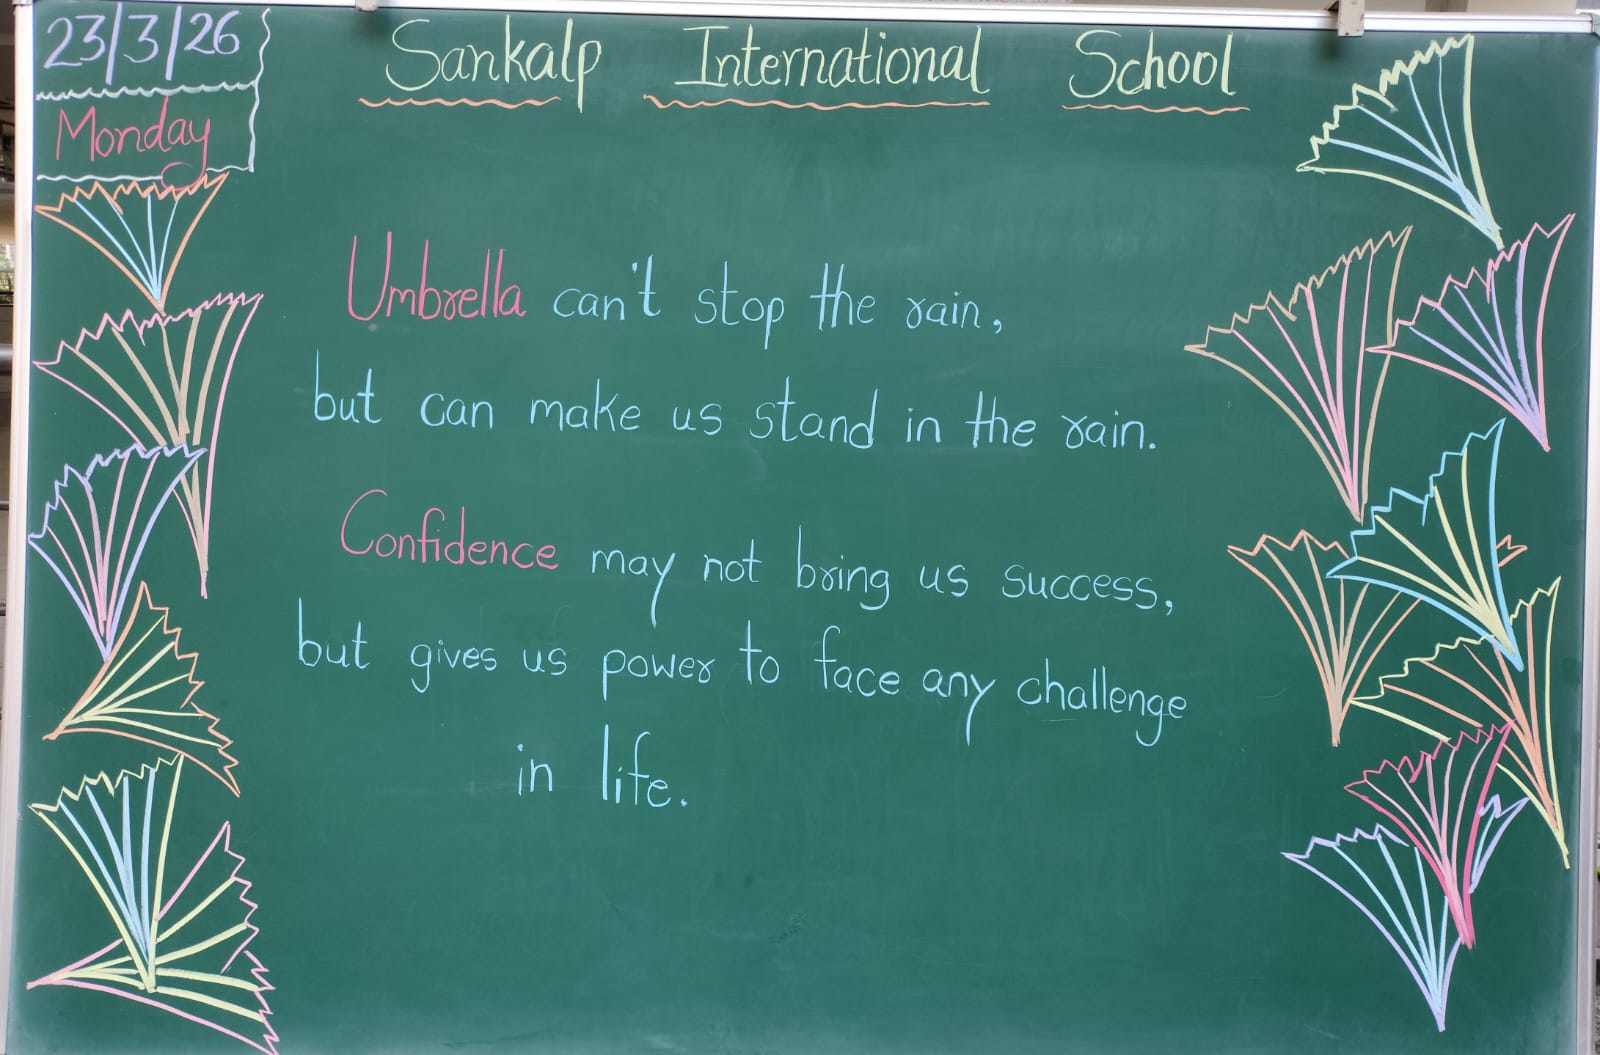 23/3/26
Monday
Sankalp International School
Umbrella can't stop the rain,
but can make us stand in the rain.
Confidence may not bring us success,
but gives us power to face any challenge
in life.